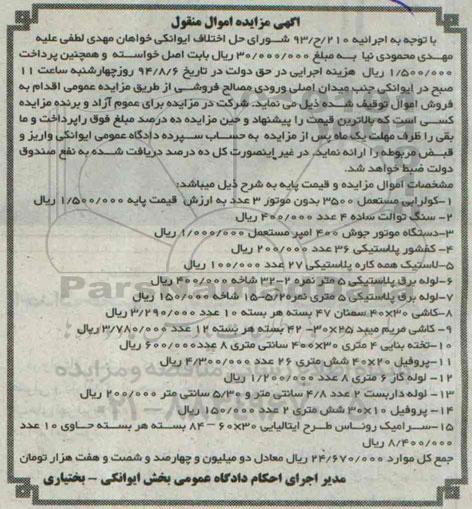 آگهی مزایده اموال منقول
با توجه به اجرائیه ۲۱۰/ح/۹۳ شورای حل اختلاف ایوانکی خواهان مهدی لطفی علیه
مهدی محمودی نیا به مبلغ ۳۰/۰۰۰/۰۰۰ ریال بابت اصل خواسته و همچنین پرداخت
۱/۵۰۰/۰۰۰ ریال هزینه اجرایی در حق دولت در تاریخ ۹۴/۸/۶ روز چهارشنبه ساعت ۱۱
صبح در ایوانکی جنب میدان اصلی ورودی مصالح فروشی از طریق مزایده عمومی اقدام به
فروش اموال توقیف شده ذیل می نماید. شرکت در مزایده برای عموم آزاد و برنده مزایده
کسی است که بالاترین قیمت را پیشنهاد و حین مزایده ده درصد مبلغ فوق را پرداخت و ما
بقی را ظرف مهلت یک ماه پس از مزایده به حساب سپرده دادگاه عمومی ایوانکی واریز و
قبض مربوطه را ارائه نماید. در غیر اینصورت کل ده درصد دریافت شده به نفع صندوق
دولت ضبط خواهد شد.
مشخصات اموال مزایده و قیمت پایه به شرح ذیل میباشد:
۱-کولر آبی مستعمل ۳۵۰۰ بدون موتور ۳ عدد به ارزش قیمت پایه ۱/۵۰۰/۰۰۰ ریال
۲- سنگ توالت ساده ۴ عدد ۴۰۰/۰۰۰ ریال
۳-دستگاه موتور جوش ۴۰۰ امپر مستعمل ۱/۰۰۰/۰۰۰ ریال
۴- کفشور پلاستیکی ۳۶ عدد ۲۰۰/۰۰۰ ریال
۵-لاستیک همه کاره پلاستیکی ۲۷ عدد ۱۰۰/۰۰۰ ریال
۶-لوله برق پلاستیکی ۵ متر نمره ۲-۳۲ شاخه ۴۰۰/۰۰۰ ریال
۷-لوله برق پلاستیکی ۵ متری نمره ۵/۲۰-۱۵ شاخه ۱۵۰/۰۰۰ ریال
۸-کاشی ۳۰×۴۰ سمنان ۴۷ بسته هر بسته ۱۰ عدد ۳/۲۹۰/۰۰۰ ریال
۹- کاشی مریم میبد ۲۵×۳۰- ۴۲ بسته هر بسته ۱۲ عدد ۳/۷۸۰/۰۰۰ ریال
۱۰-تخته بنایی ۴ متری ۳۰×۴۰۰ سانتی متری ۸ عدد ۶۰۰/۰۰۰ ریال
۱۱-پروفیل ۲۰×۴۰ شش متری ۲۶ عدد ۴/۳۰۰/۰۰۰ ریال
۱۲- لوله گاز ۶ متری ۸ عدد ۱/۲۰۰/۰۰۰ ریال
۱۳- لوله داربست ۲ عدد ۴/۸ سانتی متر و ۵/۳۰ سانتی متر ۲۰۰/۰۰۰ ریال
۱۴- پروفیل ۱۰×۳۰ شش متری ۲ عدد ۱۵۰/۰۰۰ ریال
۱۵-سرامیک روناس طرح ایتالیایی ۳۰×۶۰ - ۸۴ بسته هر بسته حاوی ۱۰ عدد
۸/۴۰۰/۰۰۰ ریال
جمع کل موارد ۲۴/۶۷۰/۰۰۰ ریال معادل دو میلیون و چهارصد و شصت و هفت هزار تومان
مدیر اجرای احکام دادگاه عمومی بخش ایوانکی - بختیاری